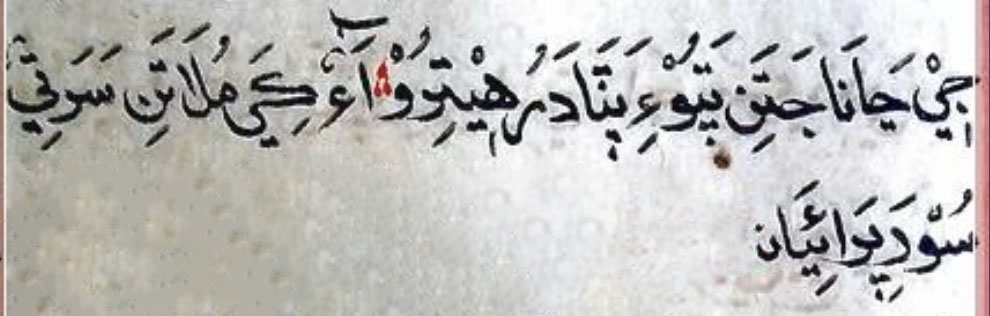 جِيْ جَانَا جَتَنِ پَتُوْءِ پَنَادَرُ هِيْتِرُوْ آءَ كِيَ مُلَاتَنِ سَوَتِيْ
سُوْرَ پِرَائِيَان